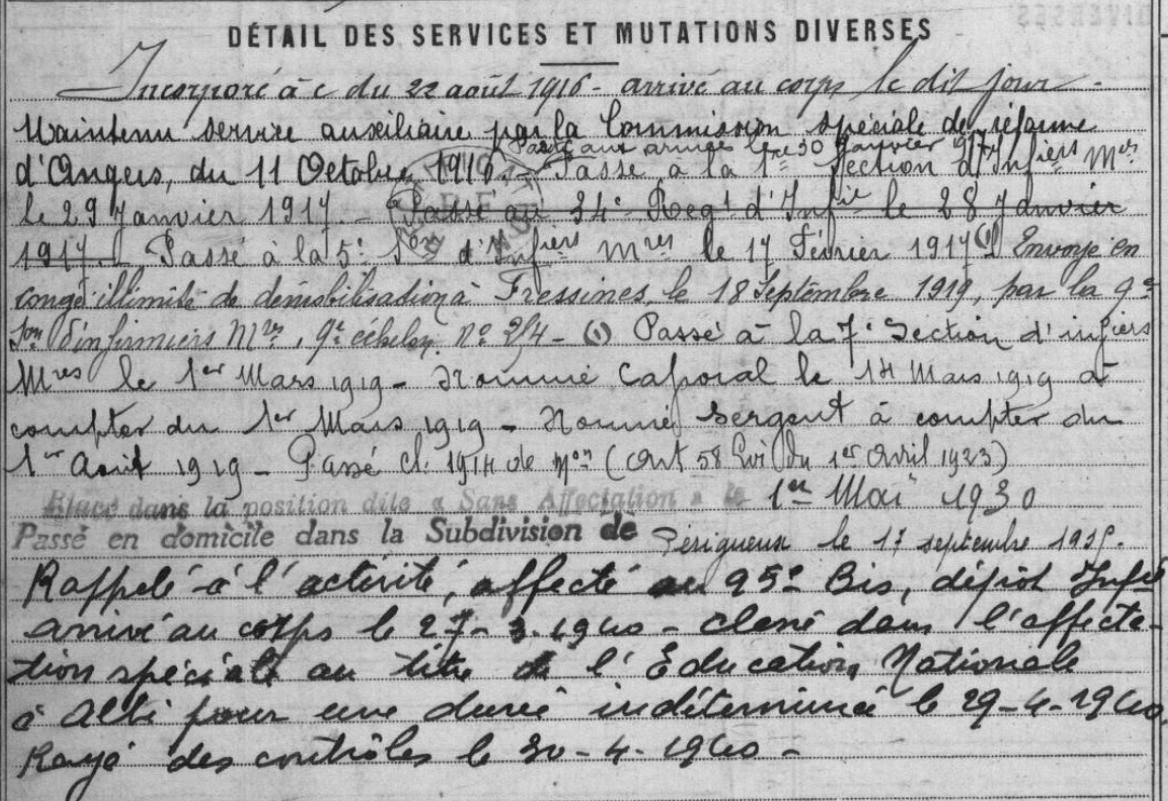 DÉTAIL DES SERVICES ET MUTATIONS DIVERSES
Incorporé à c du 22 août 1916 - arrivé au corps le dit jour -
Maintenu service auxiliaire par la Commission spéciale de réforme
Parti aux armées le 30 Janvier 917
d'Angers, du 11 Octobre 1916. - Passé à la 1re Section d'Infiers Mres
le 29 Janvier 1917. - Passé au 34e Regt d'Infie le 28 Janvier
1917. Passé à la 5e Son d'Infiers Mres le 17 Février 1917 (1) Envoyé en
congé illimité de démobilisation à Fressines, le 18 Septembre 1919, par la 9e
Son d'infirmiers Mres, 9e échelon, No 2/4 - (1) Passé à la 7e Section d'infiers
Mres le 1er Mars 1919 - Nommé Caporal le 14 Mars 1919 à
compter du 1er Mars 1919 - Nommé Sergent à compter du
1er Août 1919 - Passé Cl. 1914 de Mon (Art 58 Loi du 1er Avril 1923)
Placé dans la position dite « Sans Affectation » le 1er Mai 1930
Passé en domicile dans la Subdivision de Périgueux le 17 septembre
Rappelé à l'activité, affecté au 95e Bis, dépôt Infie
arrivé au corps le 27-3.1940 - classé dans l'affecta-
tion spéciale au titre de l'Éducation Nationale
à Albi pour une durée indéterminée le 29-4-1940
Rayé des contrôles le 30-4-1940 -